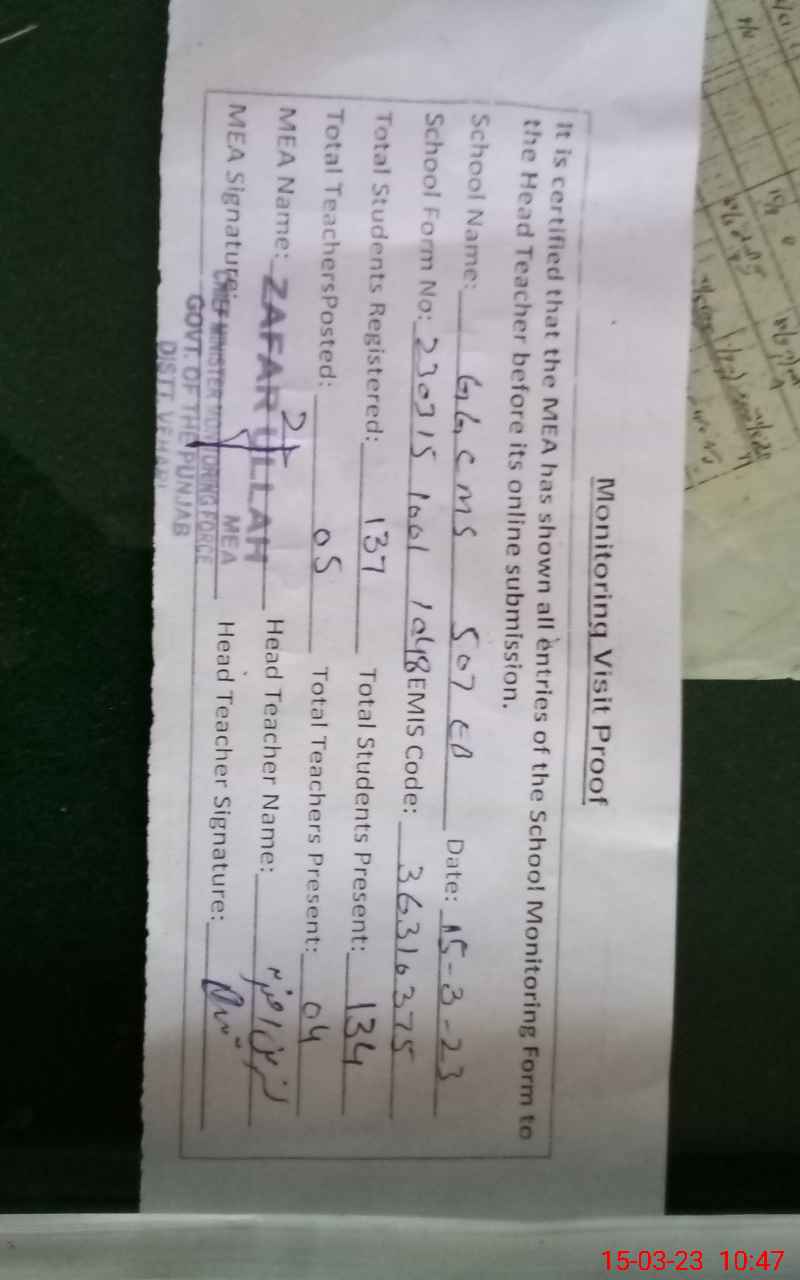 Monitoring Visit Proof
It is certified that the MEA has shown all entries of the School Monitoring Form to
the Head Teacher before its online submission.
School Name: GGCMS 507 EB Date: 15-3-23
School Form No: 230315 1001 1048 EMIS Code: 36310375
Total Students Registered: 137 Total Students Present: 134
Total TeachersPosted: 05 Total Teachers Present: 04
MEA Name: ZAFAR ULLAH Head Teacher Name:
MEA Signature: MEA Head Teacher Signature:
CHIEF MINISTER MONITORING FORCE
GOVT. OF THE PUNJAB
DISTT. VEHARI
15-03-23 10:47